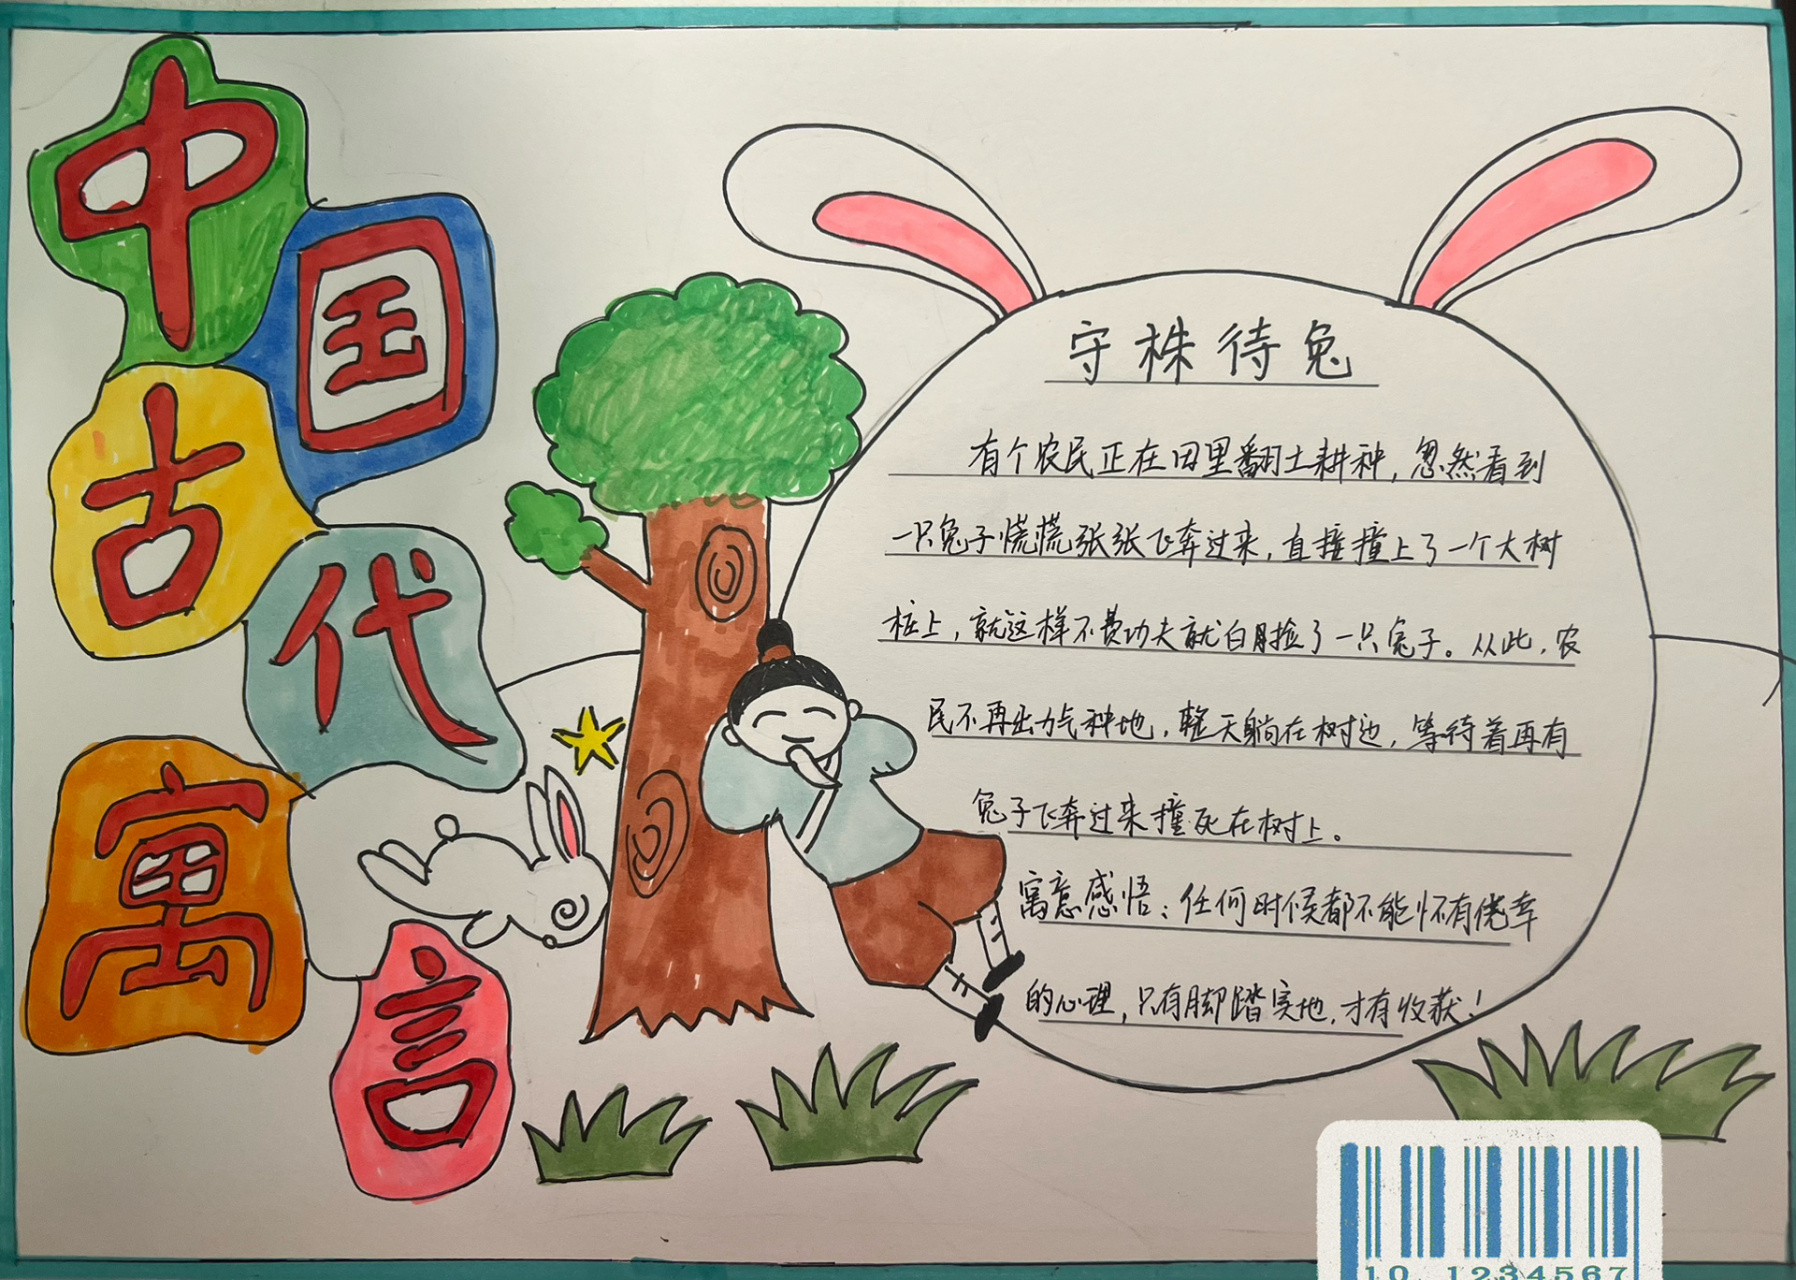 中国古代寓言
守株待兔
有个农民正在田里翻土耕种，忽然看到
一只兔子慌慌张张飞奔过来，直接撞上了一个大树
桩上，就这样不费功夫就白捡了一只兔子。从此，农
民不再出力气种地，整天躺在树边，等待着再有
兔子飞奔过来撞死在树上。
寓意感悟：任何时候都不能怀有侥幸
的心理，只有脚踏实地，才有收获！
10 1234567